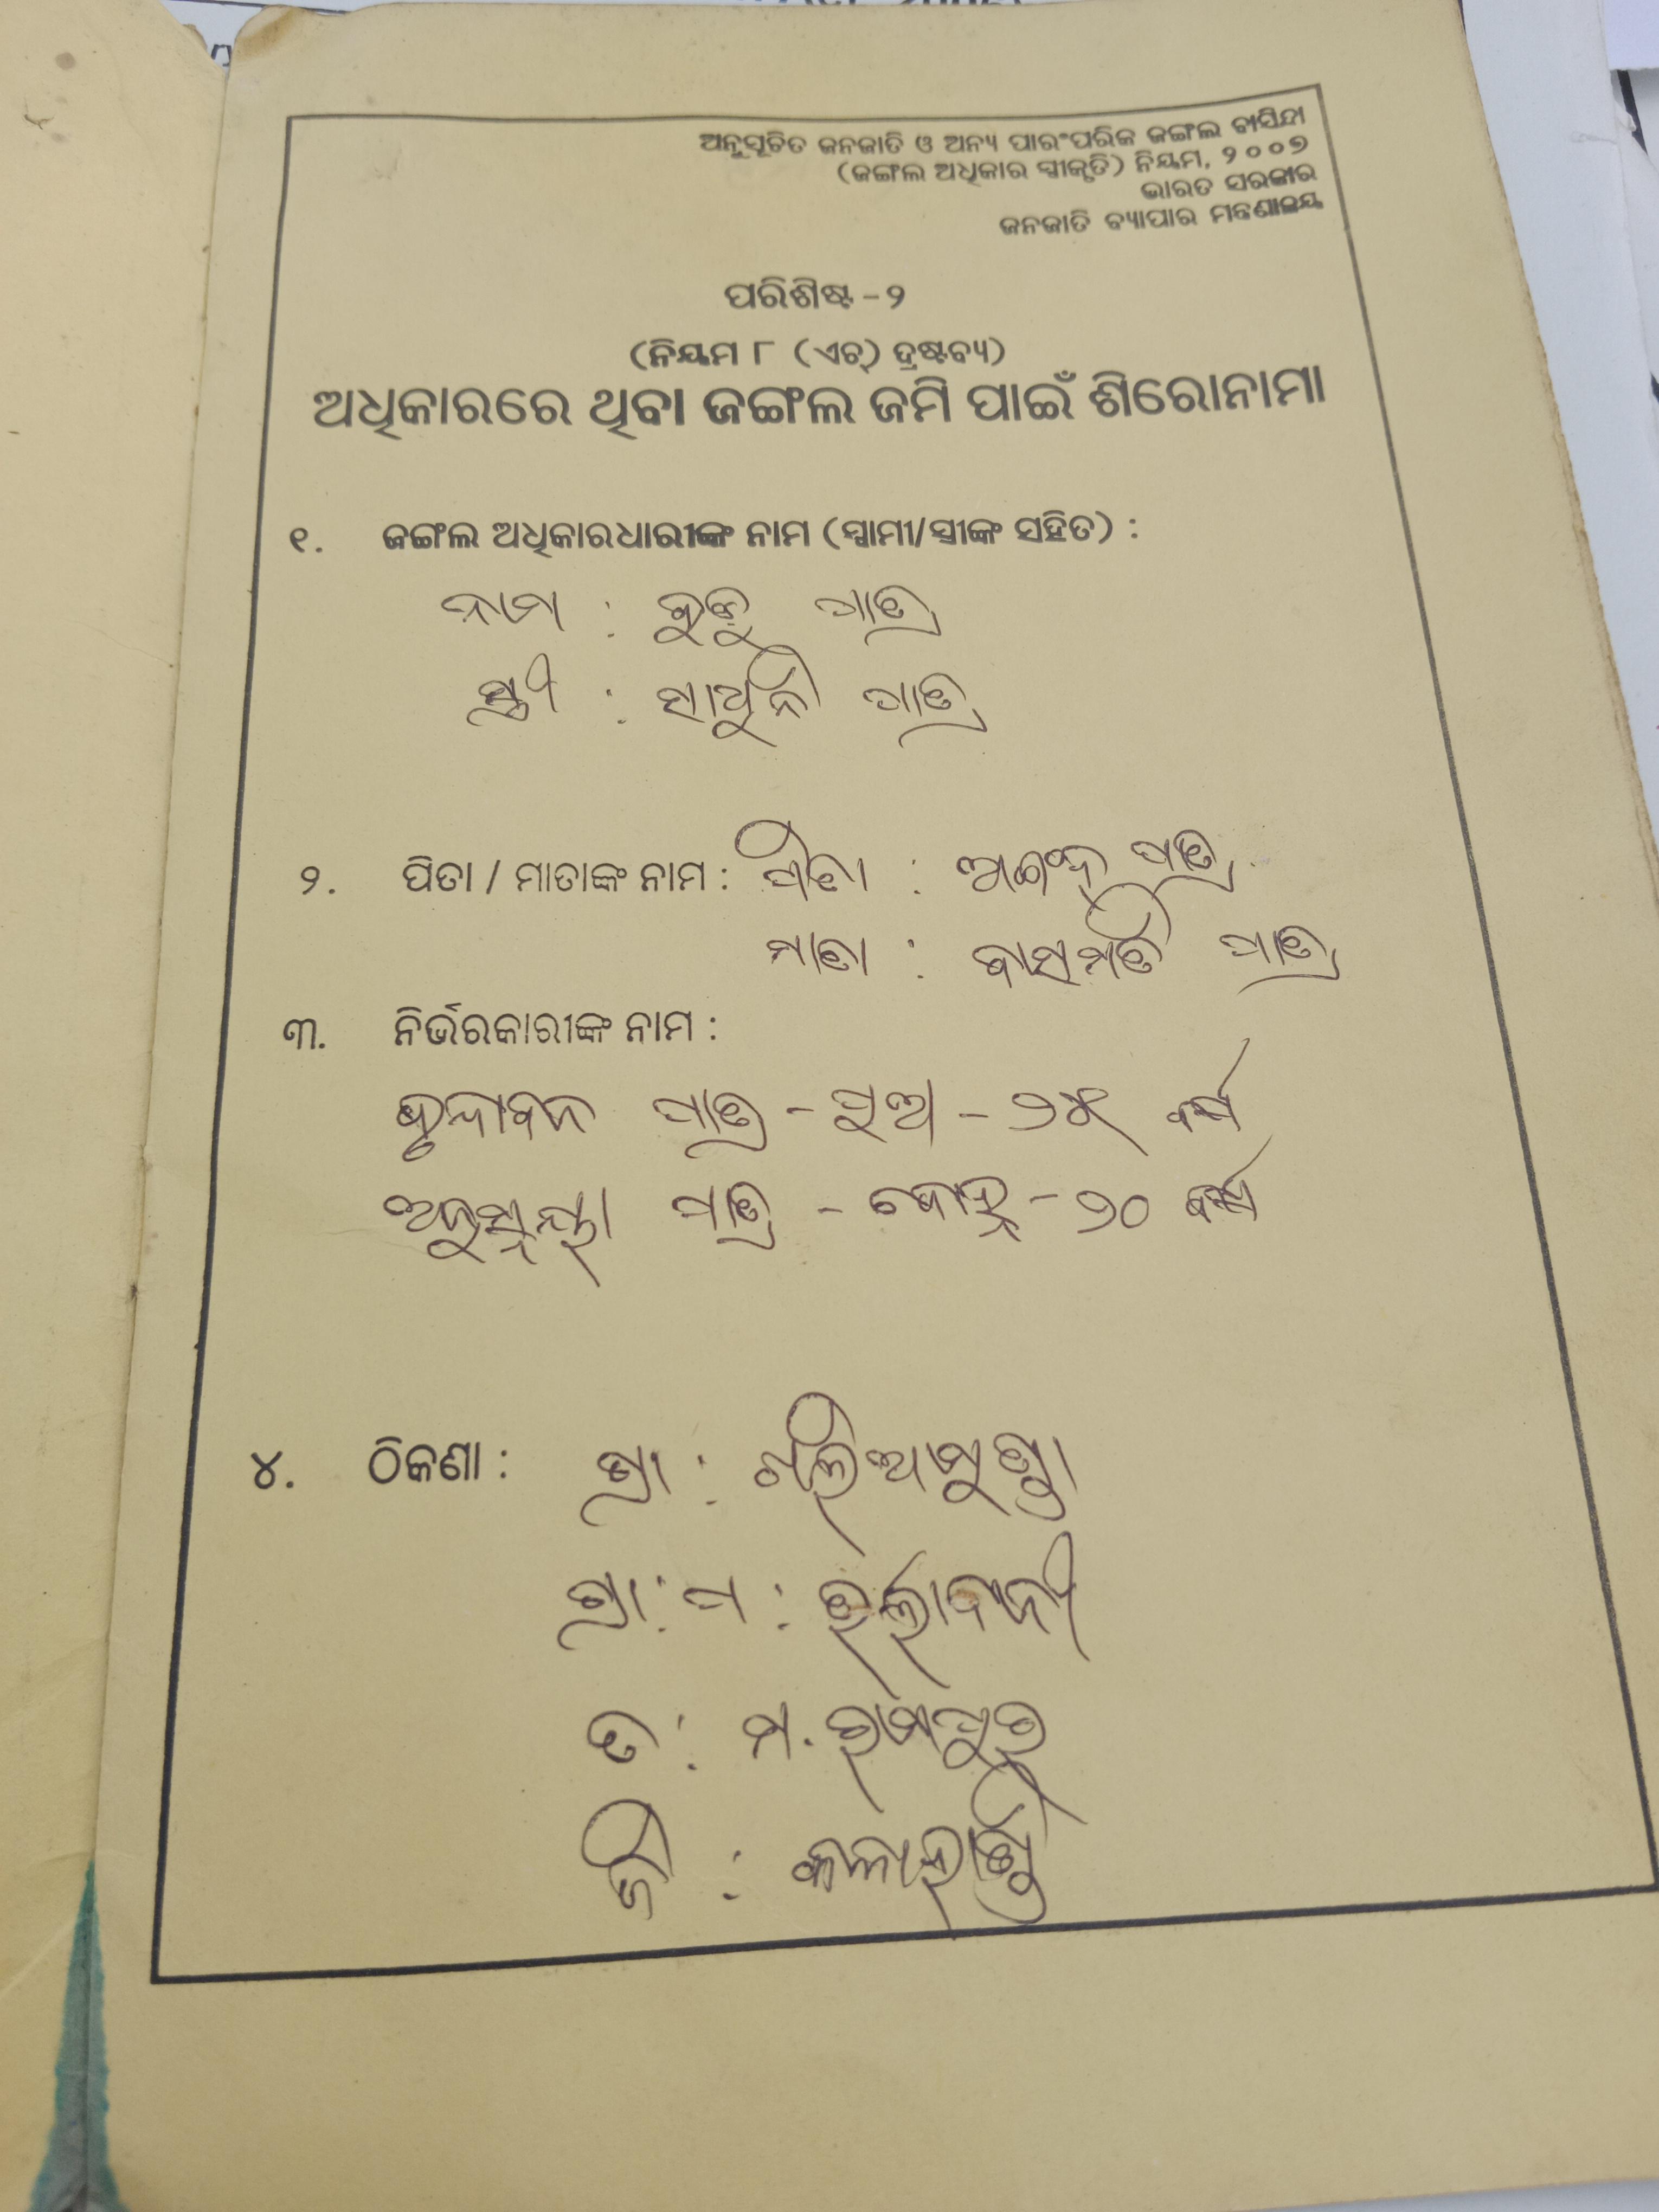 ଅନୁସୂଚିତ ଜନଜାତି ଓ ଅନ୍ୟ ପାରଂପରିକ ଜଙ୍ଗଲ ବାସିନ୍ଦା
(ଜଙ୍ଗଲ ଅଧିକାର ସ୍ୱୀକୃତି) ନିୟମ, ୨୦୦୭
ଭାରତ ସରକାର
ଜନଜାତି ବ୍ୟାପାର ମନ୍ତ୍ରଣାଳୟ
ପରିଶିଷ୍ଟ - ୨
(ନିୟମ ୮ (ଏଚ୍) ଦ୍ରଷ୍ଟବ୍ୟ)
ଅଧିକାରରେ ଥିବା ଜଙ୍ଗଲ ଜମି ପାଇଁ ଶିରୋନାମା
୧. ଜଙ୍ଗଲ ଅଧିକାରଧାରୀଙ୍କ ନାମ (ସ୍ୱାମୀ/ସ୍ତ୍ରୀଙ୍କ ସହିତ) :
ନାମ : ପାତ୍ର
ସ୍ତ୍ରୀ : ପାତ୍ର
୨. ପିତା / ମାତାଙ୍କ ନାମ : ପିତା : ପାତ୍ର
ମାତା : ବାସମତି ପାତ୍ର
୩. ନିର୍ଭରକାରୀଙ୍କ ନାମ :
ବୃନ୍ଦାବନ ପାତ୍ର - ପୁଅ - ୨୪ ବର୍ଷ
ପାତ୍ର - ବୋହୂ - ୨୦ ବର୍ଷ
୪. ଠିକଣା : ଗ୍ରା :
ଗ୍ରା : ପ :
ତ : ମ. ରାମପୁର
ଜି : କଳାହାଣ୍ଡି